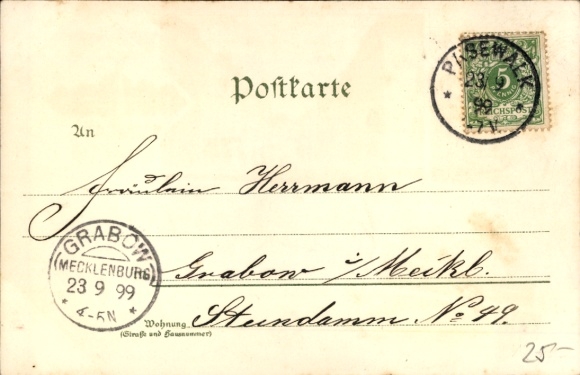 PASEWALK
23 9
99
-7 V.
5
REICHSPOST
Postkarte
An
Fräulein Herrmann
GRABOW
(MECKLENBURG)
23 9 99
4-5N
Grabow i/Meckl.
Steindamm No 49.
Wohnung
(Straße und Hausnummer)
25-